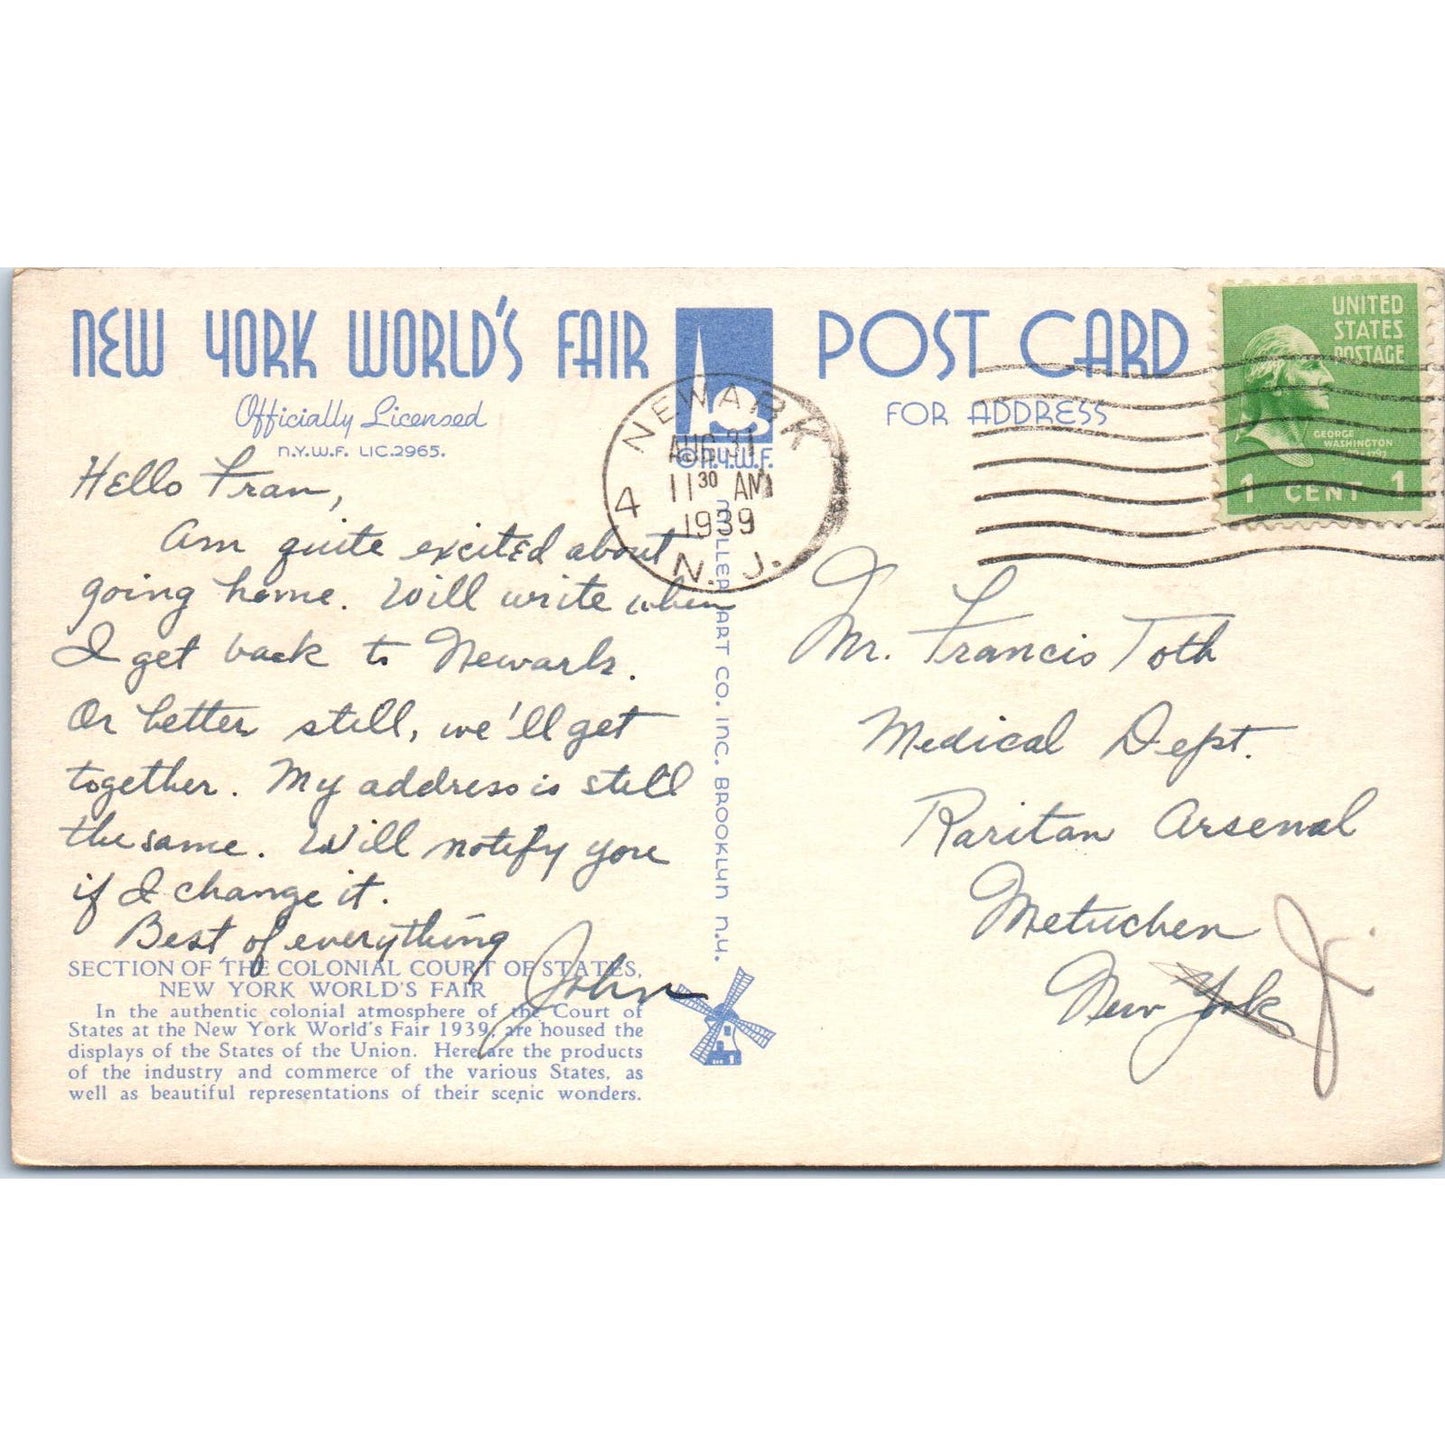 NEW YORK WORLD'S FAIR
Officially Licensed
N.Y.W.F. LIC.2965.
© N.Y.W.F.
POST CARD
FOR ADDRESS
UNITED
STATES
POSTAGE
GEORGE
WASHINGTON
1 CENT 1
NEWARK
AUG 31
11 30 AM
1939
4
N. J.
Hello Fran,
Am quite excited about
going home. Will write when
I get back to Newark.
Or better still, we'll get
together. My address is still
the same. Will notify you
if I change it.
Best of everything
John
SECTION OF THE COLONIAL COURT OF STATES,
NEW YORK WORLD'S FAIR
In the authentic colonial atmosphere of the Court of
States at the New York World's Fair 1939, are housed the
displays of the States of the Union. Here are the products
of the industry and commerce of the various States, as
well as beautiful representations of their scenic wonders.
MILLER ART CO. INC. BROOKLYN N.Y.
Mr. Francis Toth
Medical Dept.
Raritan Arsenal
Metuchen
New York J.